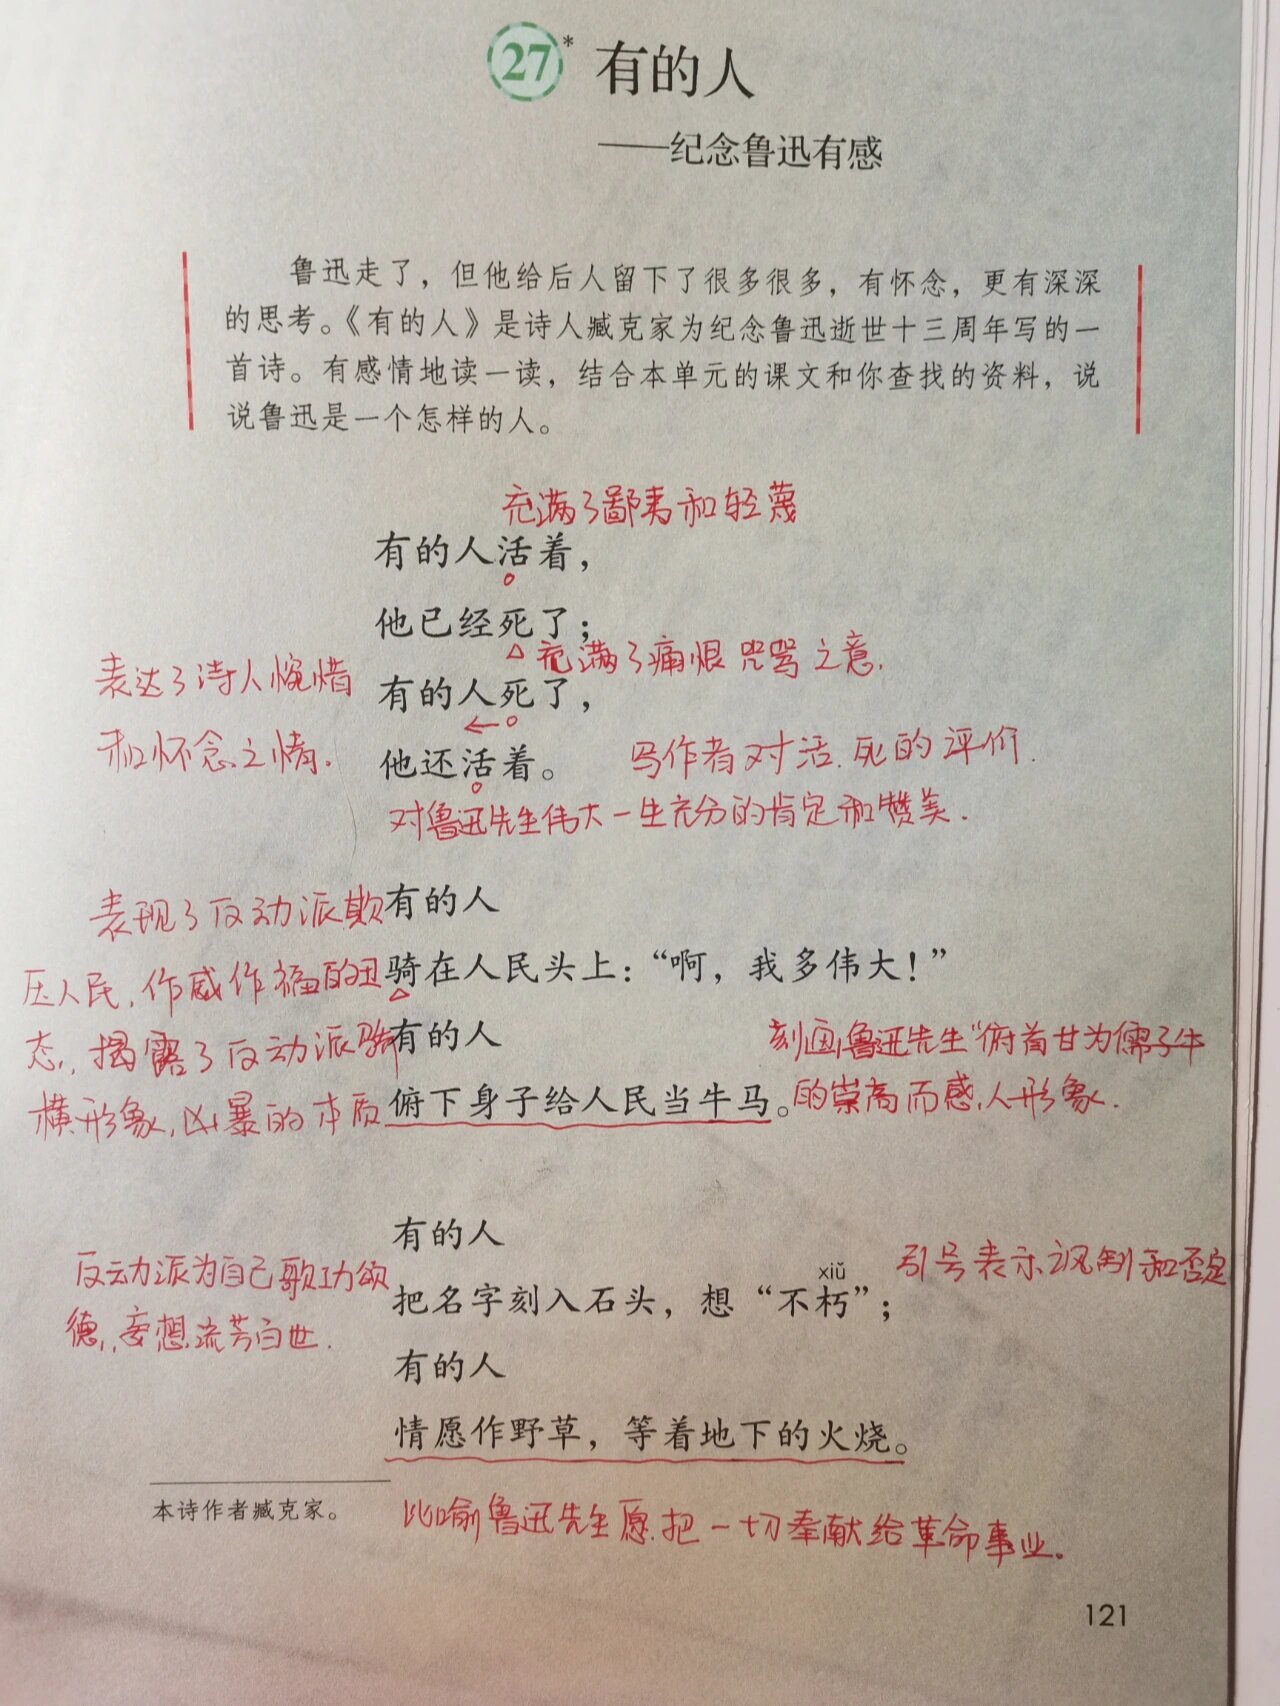 27* 有的人
——纪念鲁迅有感
鲁迅走了，但他给后人留下了很多很多，有怀念，更有深深
的思考。《有的人》是诗人臧克家为纪念鲁迅逝世十三周年写的一
首诗。有感情地读一读，结合本单元的课文和你查找的资料，说
说鲁迅是一个怎样的人。
充满了鄙夷和轻蔑
有的人活着，
他已经死了；
充满了痛恨咒骂之意.
表达了诗人惋惜
有的人死了，
和怀念之情.
他还活着。
写作者对活.死的评价.
对鲁迅先生伟大一生充分的肯定和赞美.
表现了反动派欺
有的人
压人民.作威作福的丑
骑在人民头上：“啊，我多伟大！”
态.揭露了反动派骄
有的人
刻画鲁迅先生“俯首甘为儒子牛
横形象.凶暴的本质
俯下身子给人民当牛马。
的崇高而感人形象.
有的人
反动派为自己歌功颂
引号表示讽刺和否定
xiǔ
把名字刻入石头，想“不朽”；
德.妄想流芳百世.
有的人
情愿作野草，等着地下的火烧。
本诗作者臧克家。
比喻鲁迅先生愿把一切奉献给革命事业。
121